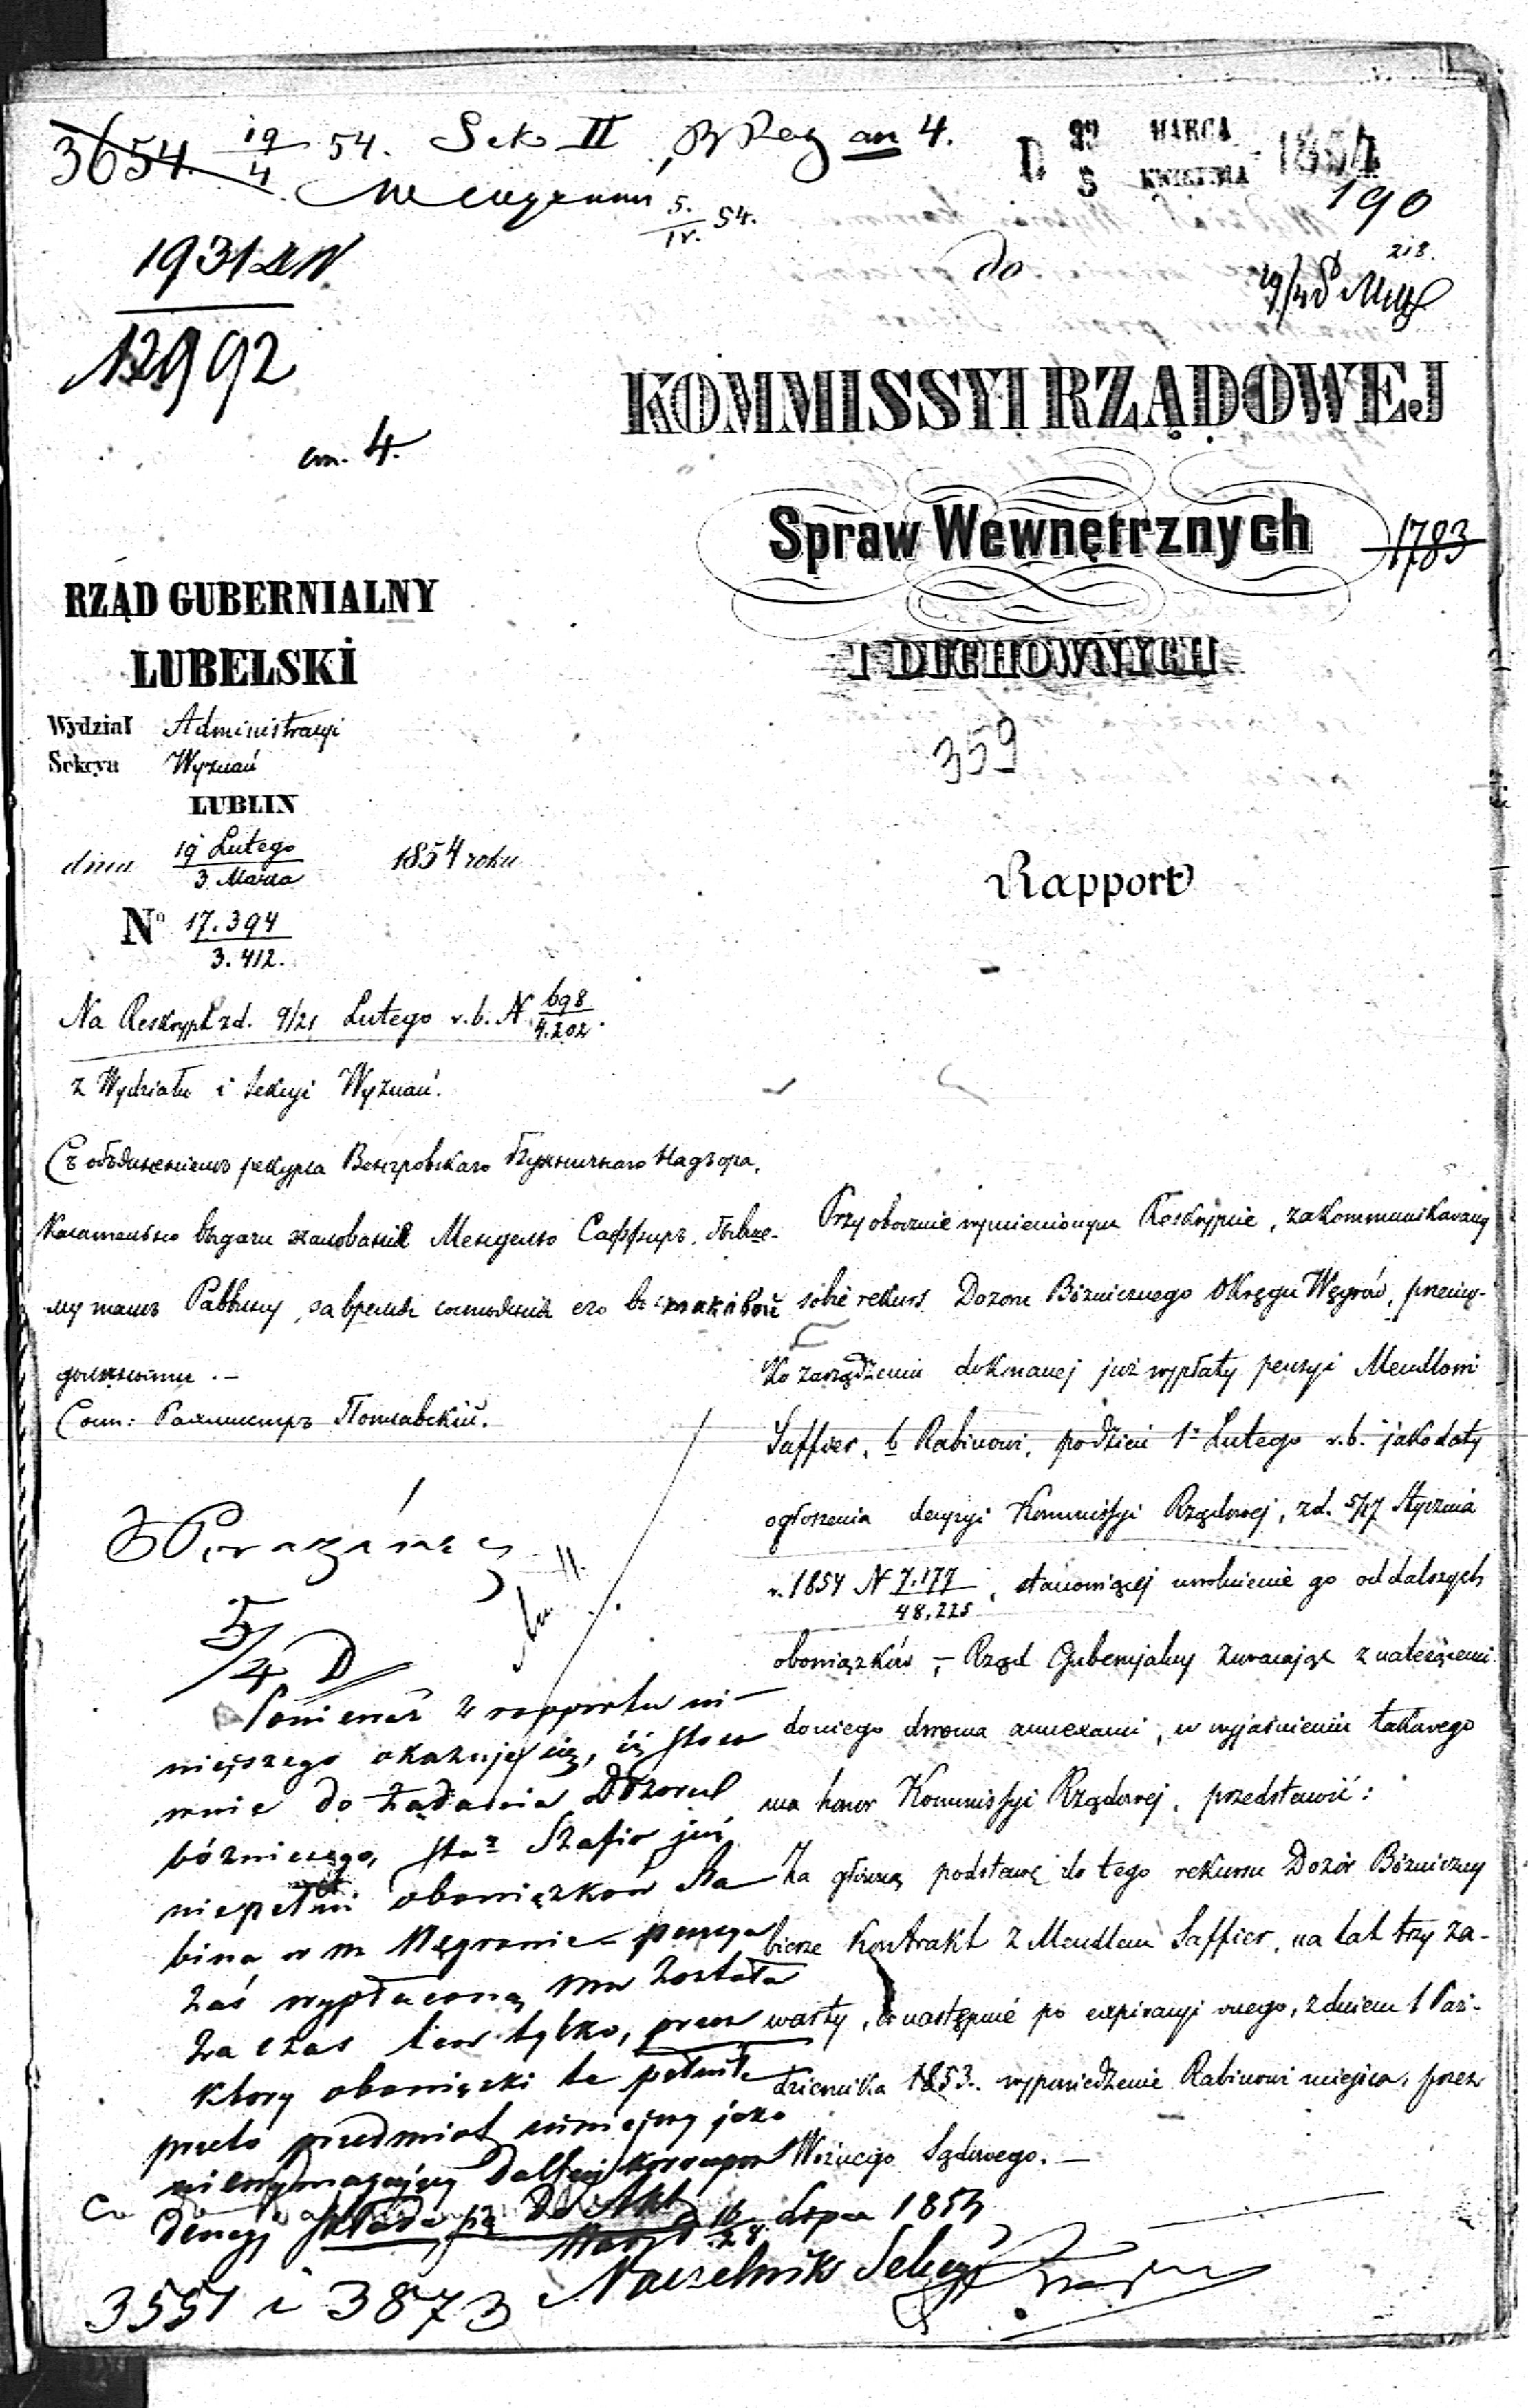 3654. 19/4 54. Sek II
D. 22 MARCA 1854
3 KWIETNIA
5./IV. 54.
190
218.
1931
12992
an. 4.
do
KOMMISSYI RZĄDOWEJ
Spraw Wewnętrznych
1783
I DUCHOWNYCH
359
Rapport
RZĄD GUBERNIALNY
LUBELSKI
Wydział Administracyi
Sekcya Wyznań
LUBLIN
dnia 19 Lutego / 3 Marca 1854 roku
No 17.394 / 3.412.
Na Reskrypt z d. 9/21 Lutego r. b. N 698 / 4.202.
z Wydziału i Sekcyi Wyznań.
Съ объясненіемъ рекурса Венгровскаго Божничнаго Надзора,
касательно выдачи жалованія Менделю Саффиръ, бывше-
му тамъ Раввину, за время состоянія его въ таковой
должности. –
Przy obocznie wymienionym Reskrypcie, zakommunikowany
sobie rekurs Dozoru Bożniczego Okręgu Węgrów, przeciw-
ko zarządzeniu dokonanej już wypłaty pensyi Mendlowi
Saffier, b. Rabinowi, po dzień 1o Lutego r. b. jako daty
ogłoszenia decyzyi Kommissyi Rządowej, z d. 5/17 Stycznia
r. 1854 N 7.177 / 48,225, stanowiącej uwolnienie go od dalszych
obowiązków, – Rząd Gubernjalny zwracając z należącemi
do niego dwoma annexami, w wyjaśnieniu takowego
ma honor Kommissyi Rządowej, przedstawić:
Za główną podstawę do tego rekursu Dozór Bożniczny
bierze kontrakt z Mendlem Saffier, na lat trzy za-
warty, a następnie po expiracyi onego, z dniem 1 Paź-
dziernika 1853. wypowiedzenie Rabinowi miejsca, przez
Woźnego Sądowego. –
5/4 D
Ponieważ z rapportu ni-
niejszego okazuje się, iż stoso
wnie do żądania Dozoru
bóżniczego, Szafir już
niepełni obowiązków Ra
bina w m Węgrowie – pensya
zaś wypłaconą mu została
za czas ten tylko, przez
który obowiązki te pełnił
przeto przedmiot niniejszy jako
niewymagający dalszej korrespon
dencyi składa się Do Akt
16/28 Lipca 1854
Naczelnik Sekcyi
3551 i 3873